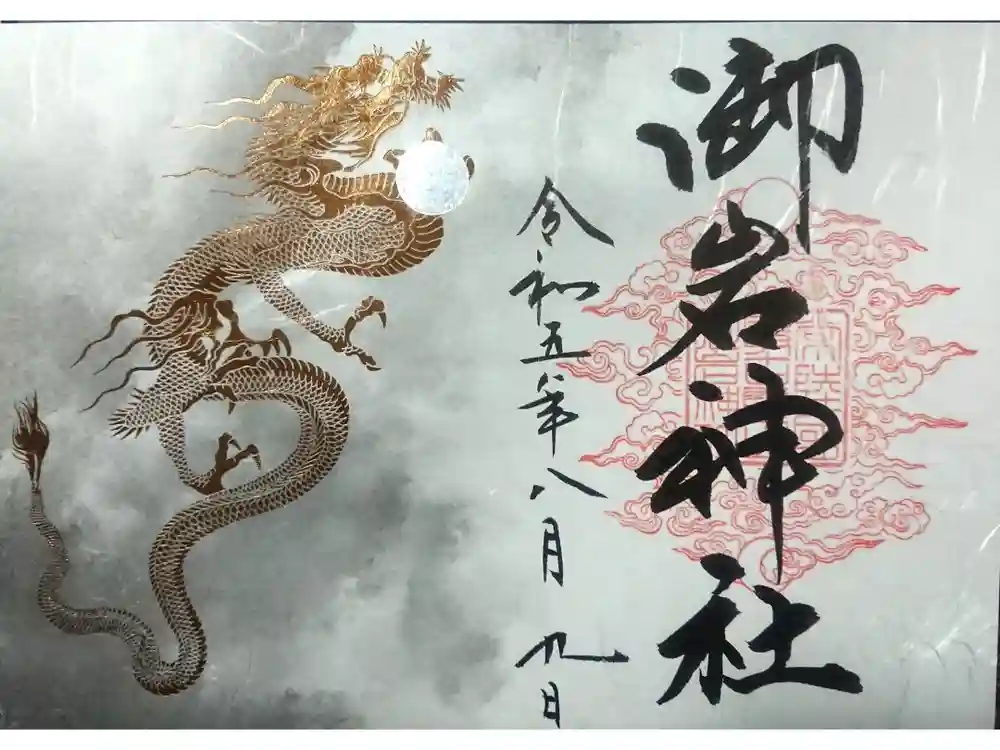 御岩神社
令和五年八月九日